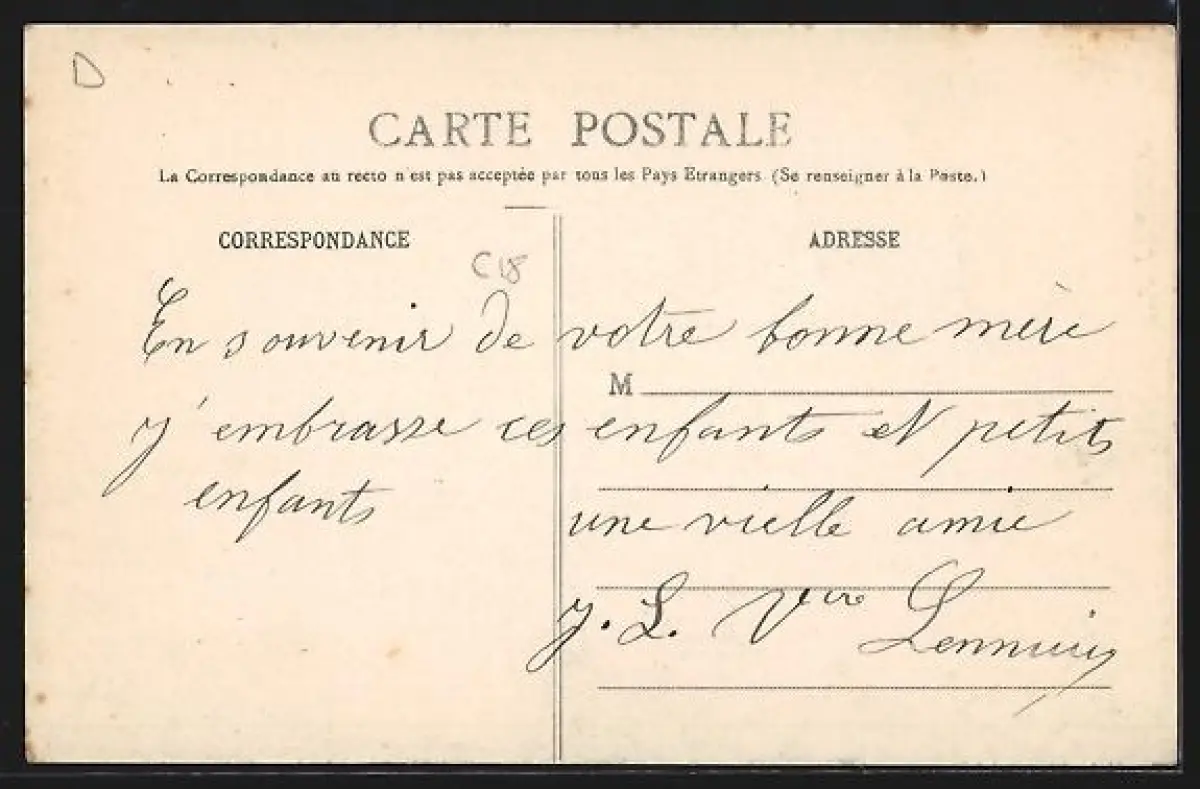 D
CARTE POSTALE
La Correspondance au recto n'est pas acceptée par tous les Pays Etrangers (Se renseigner à la Poste.)
CORRESPONDANCE
ADRESSE
C18
En souvenir de votre bonne mère
M
j'embrasse ces enfants et petits
enfants
une vielle amie
J. L. Vve